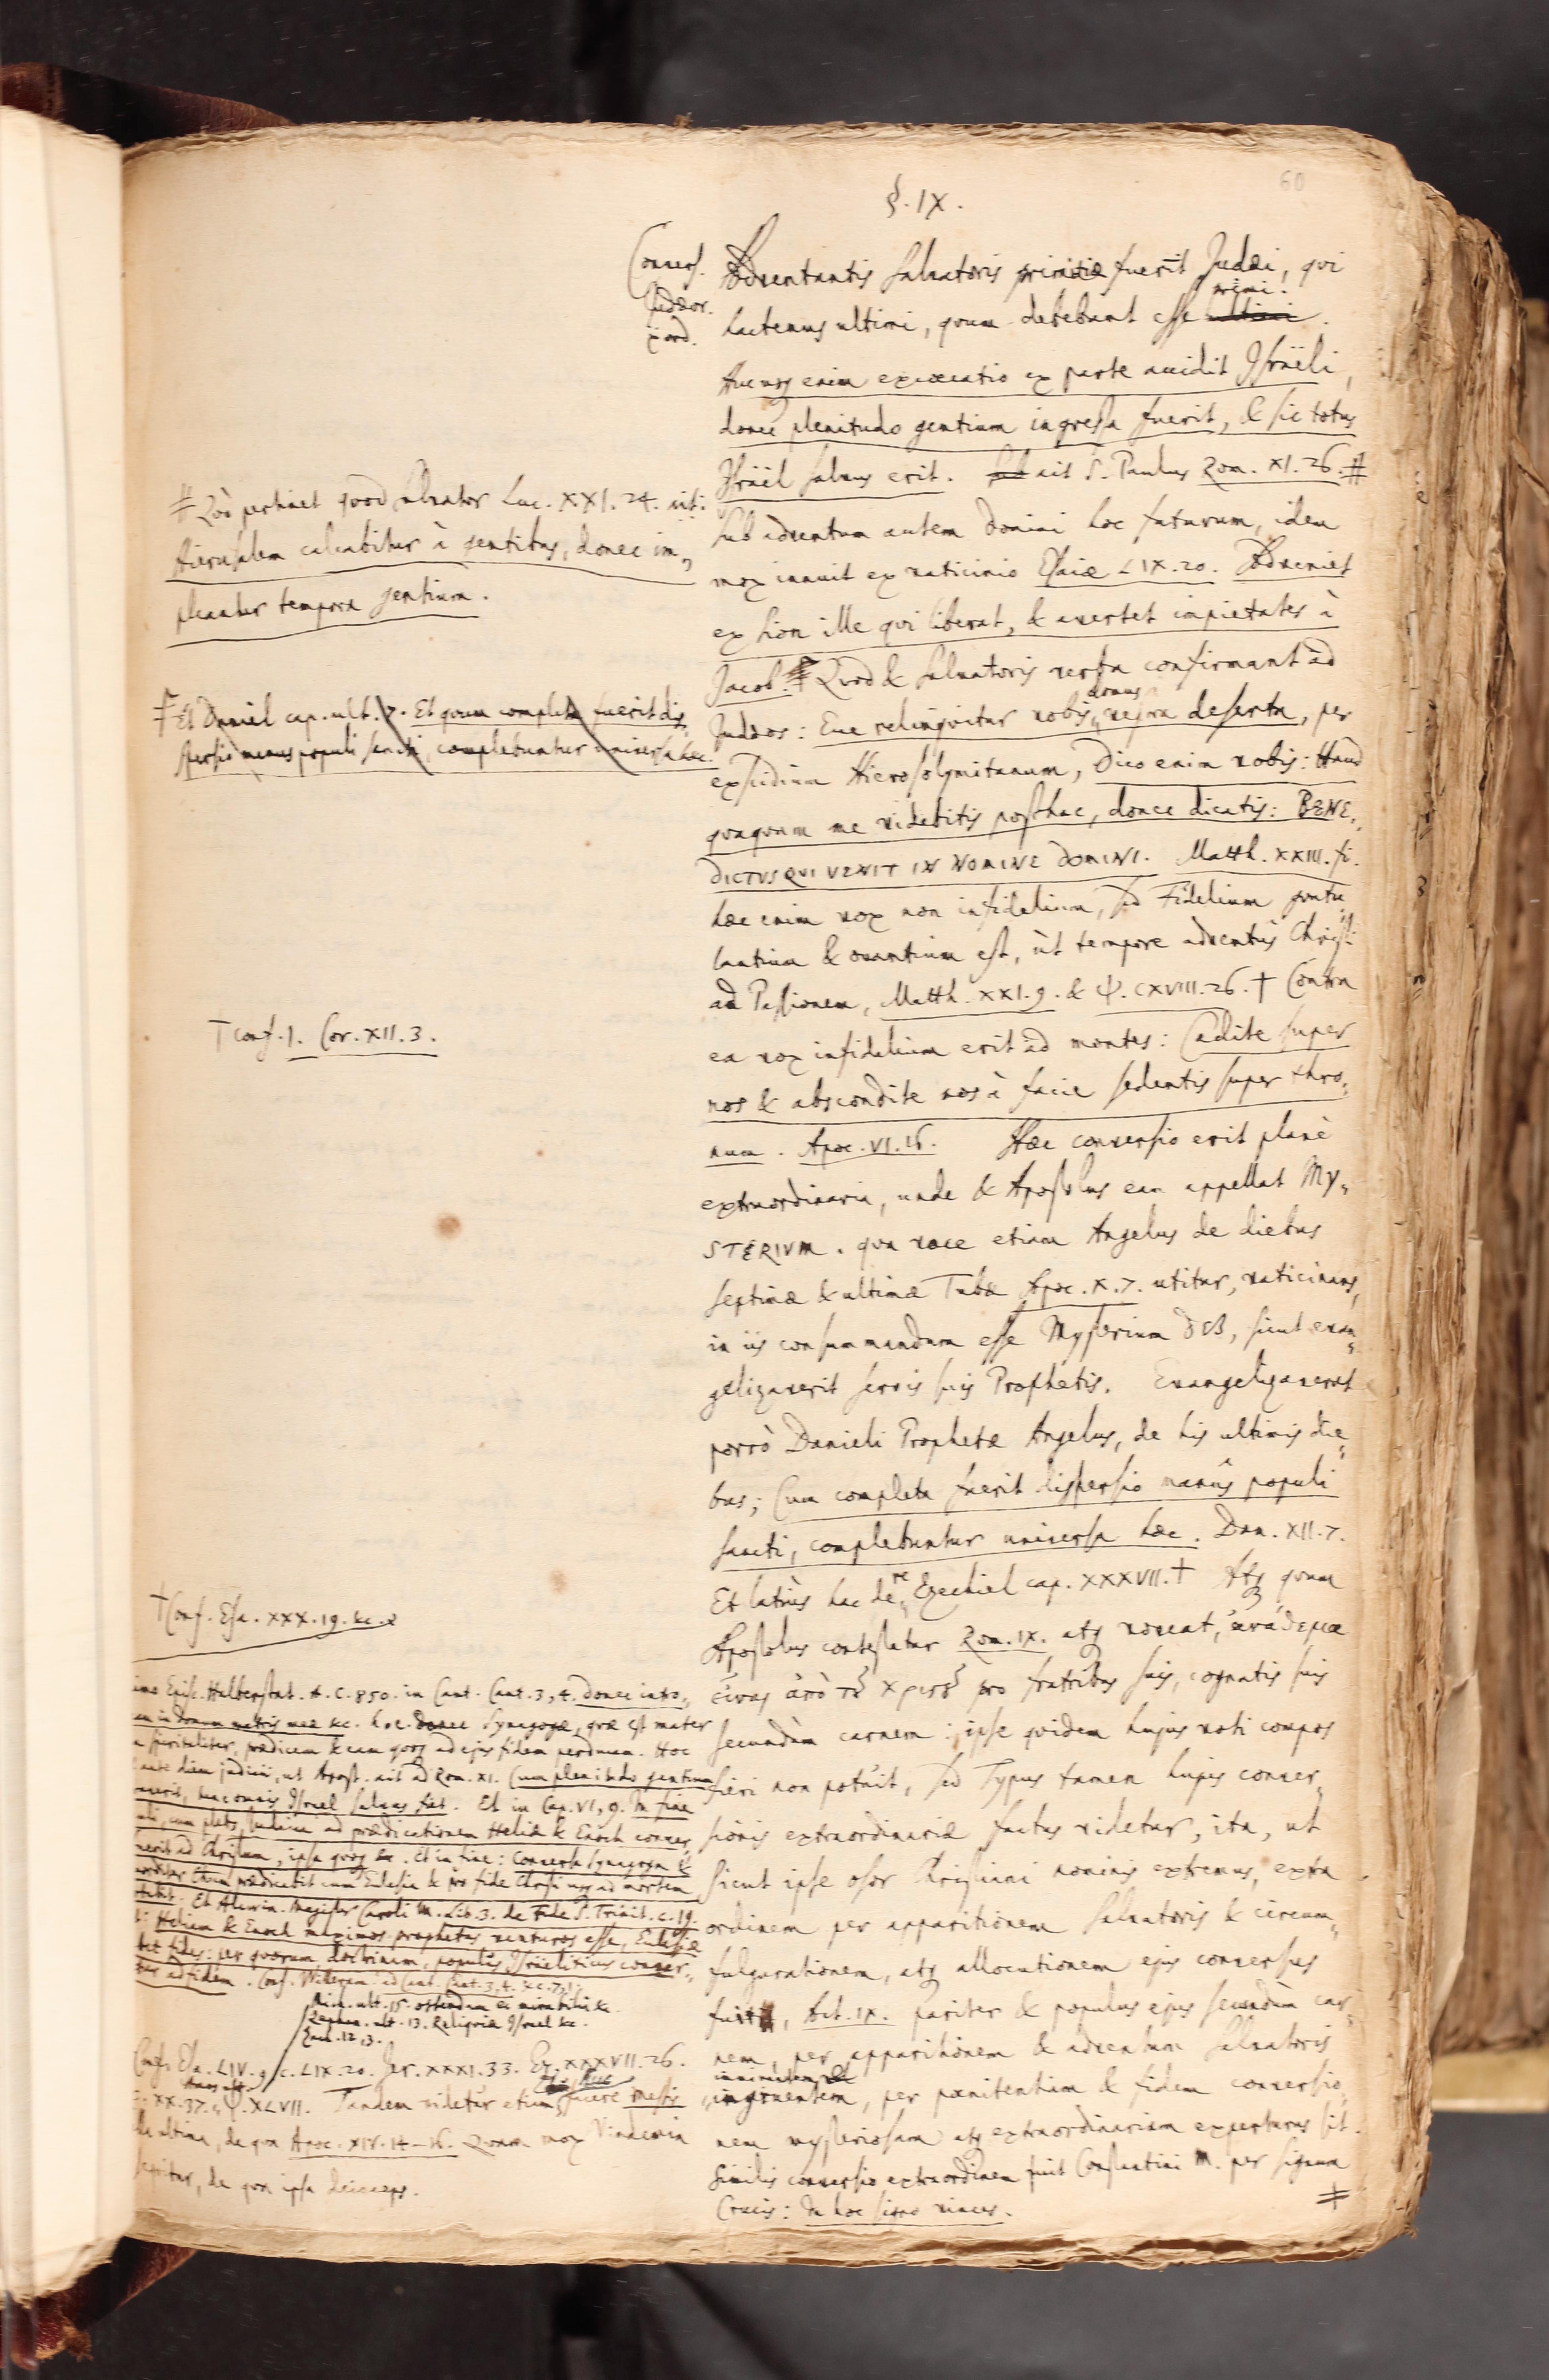 60
§. IX.
Convers.
Judæor.
Adventantis Salvatoris primitiæ fuerit Judæi, qui
hactenus ultimi, quum debebant esse primi.
Avensis enim excæcatio ex parte accidit Israëli,
donec plenitudo gentium ingressa fuerit, & sic totus
Israël salvus erit. ait S. Paulus Rom. XI. 26. #
Sub adventum autem Domini hoc futurum, idem
mox innuit ex vaticinio Esaiæ LIX. 20. Adveniet
ex Sion ille qui liberat, & avertet impietates à
Jacob. ‡ Quod & Salvatoris verba confirmant ad
Judæos: Ecce relinquitur vobis domus vestra deserta, per
excidium Hierosolymitanum, Dico enim vobis: Haud
quaquam me videbitis posthac, donec dicatis: BENE-
DICTVS QVI VENIT IN NOMINE DOMINI. Matth. XXIII. fi.
hæc enim vox non infidelium, sed Fidelium gratu-
lantium & ovantium est, ùt tempore adventûs Christi
ad Passionem, Matth. XXI. 9. & Ψ. CXVIII. 26. † Contra
ea vox infidelium erit ad montes: Cadite super
nos & abscondite nos à facie sedentis super thro-
num. Apoc. VI. 16. Hæc conversio erit planè
extraordinaria, unde & Apostolus eam appellat MY-
STERIVM. qua voce etiam Angelus de diebus
septimæ & ultimæ Tubæ Apoc. X. 7. utitur, vaticinans,
in iis consummandum esse Mysterium DEI, sicut evan-
gelizaverit servis suis Prophetis. Evangelizaverat
porrò Danieli Prophetæ Angelus, de his ultimis die-
bus; Cum completa fuerit dispersio manûs populi
sancti, complebuntur universa hæc. Dan. XII. 7.
Et latiùs hac de re Ezechiel cap. XXXVII. † Atq quum
Apostolus contestatur Rom. IX. atq voveat, ἀνάθεμα
εἶναι ἀπὸ τȣ̃ χριστȣ̃ pro fratribus suis, cognatis suis
secundùm carnem: ipse quidem hujus voti compos
fieri non potuit, sed Typus tamen hujus conver-
sionis extraordinariæ factus videtur, ita, ut
sicut ipse osor Christiani nominis extremus, extra
ordinem per apparitionem Salvatoris & circum-
fulgurationem, atq allocutionem ejus conversus
fuit, Act. IX. pariter & populus ejus secundùm car-
nem, per apparitionem & adventum Salvatoris
imminentem
ingruentem, per pœnitentiam & fidem conversio-
nem mysteriosam atq extraordinariam experturus sit.
Similis conversio extraordinem fuit Constantini M. per signum
Crucis: In hoc signo vinces. ‡
# Quò pertinet quod Salvator Luc. XXI. 24. ait:
Hierusalem calcabitur à gentibus, donec im-
pleantur tempora gentium.
‡ Et Daniel cap. ult. 7. Et quum completa fuerit dis-
persio manus populi sancti, complebuntur universa hæc.
† conf. 1. Cor. XII. 3.
† Conf. Esa. XXX. 19. &c.
Episc. Halberstat. A. C. 850. in Cant. Cant. 3, 4. donec intro-
in domum matris meæ &c. h. e. donec Synagogæ, quæ est mater
spiritaliter, prædicem & eam quoq ad ejus fidem perducam. Hoc
ante diem judicii, ut Apost. ait ad Rom. XI. Cum plenitudo gentium
tunc omnis Israel salvus fiet. Et in Cap. VI, 9. In fine
Judaica ad prædicationem Heliæ & Enoch conver-
ad Christum, ipsa quoq &c. Et in fine: Conversa Synagoga &
prædicabit cum Ecclesia & pro fide Christi usq ad mortem
Et Alcuin. Magister Caroli M. Lib. 3. de Fide S. Trinit. c. 19.
Heliam & Enoch maximos prophetas venturos esse, Ecclesiæ
fides: per quorum doctrinam, populus Israëliticus conver-
ad fidem. Conf. Willeram. ad Cant. Cant. 3, 4. &c. 7, 1;
Mich. ult. 15. ostendam ei mirabilia &c.
13. Reliquiæ Israel &c.
Zach. 12, 3.
Conf. Esa. LIV. 9. c. LIX. 20. Jer. XXXI. 33. Ez. XXXVII. 26.
XX. 37. Ψ. XLVII. Tandem videtur etiam facere messis
ultima, de qua Apoc. XIV. 14-16. Quam mox Vindemia
sequitur, de qua ipsa deinceps.